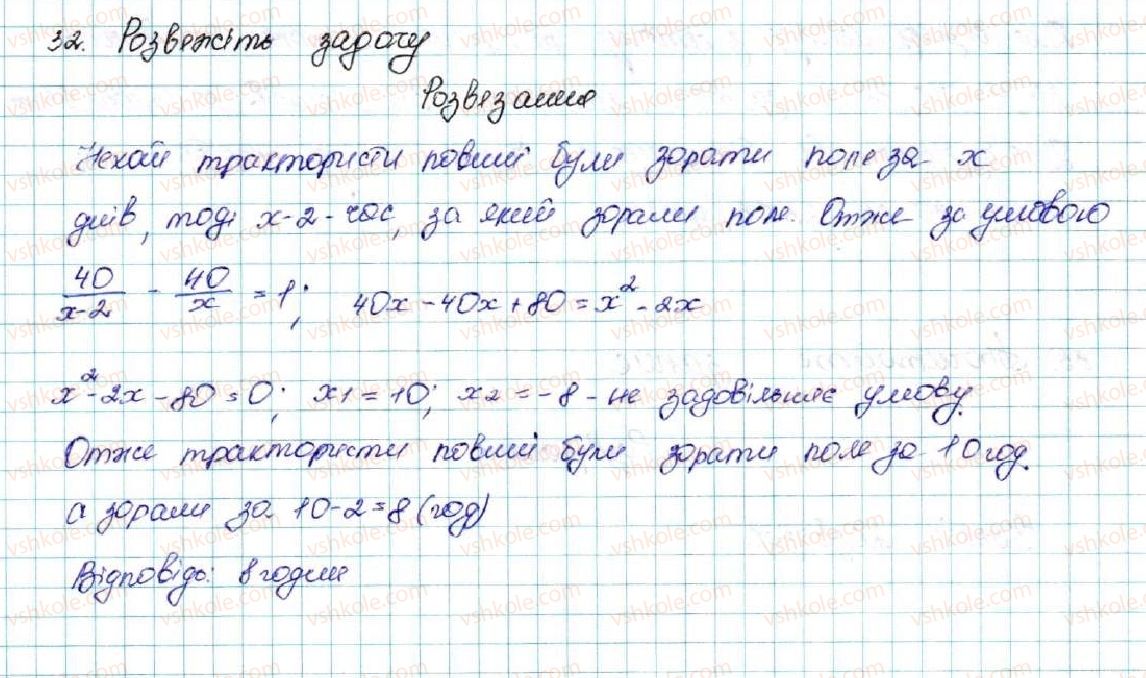 32. Розвяжіть задачу
Розвязання
Нехай трактористи повинні були зорати поле за x
днів, тоді x-2 - час, за який зорали поле. Отже за умовою
40/(x-2) - 40/x = 1; 40x - 40x + 80 = x² - 2x
x² - 2x - 80 = 0; x1 = 10; x2 = -8 - не задовільняє умову.
Отже трактористи повинні були зорати поле за 10 год.
а зорали за 10-2=8 (год)
Відповідь: 8 годин